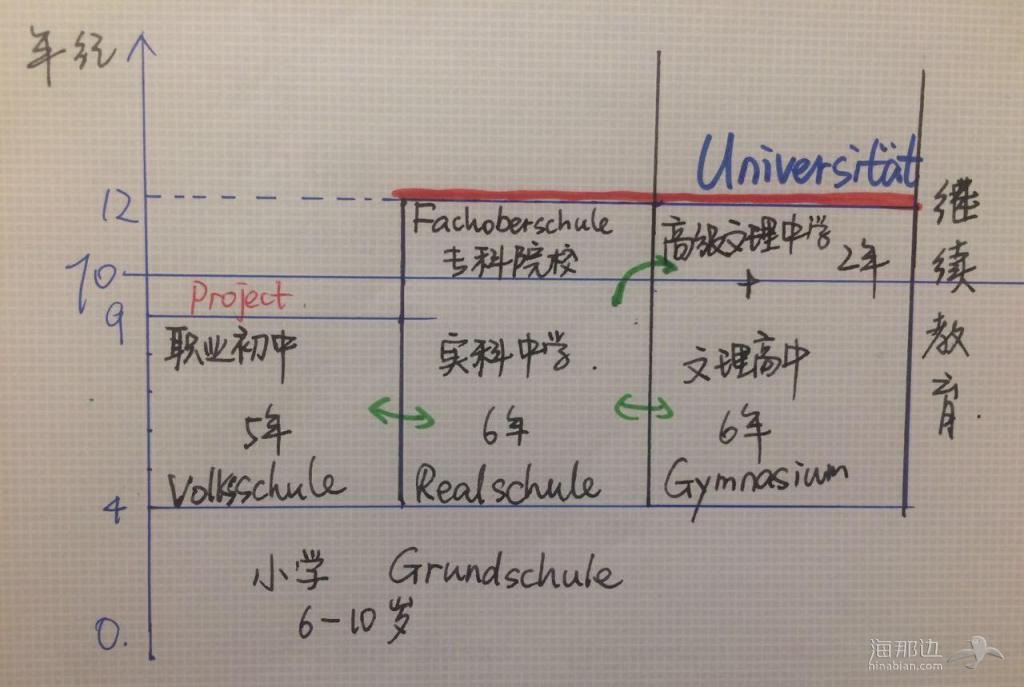 年经
Universität
12
Fachoberschule
专科院校
高级文理中学
2年
+
10
Project
9
职业初中
实科中学.
文理高中
5年
6年
6年
Volksschule
Realschule
Gymnasium
4
小学 Grundschule
6-10岁
0.
继续教育.
海那边
hinabian.com